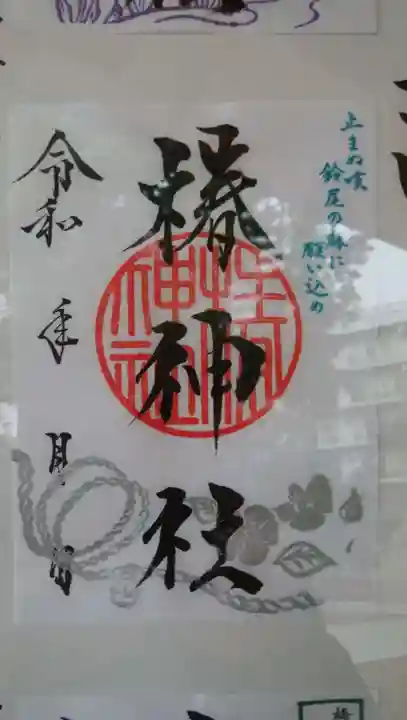 止まぬ咳
鈴尾の緒に
願い込め
椿神社
令和 年 月 日
椿神社